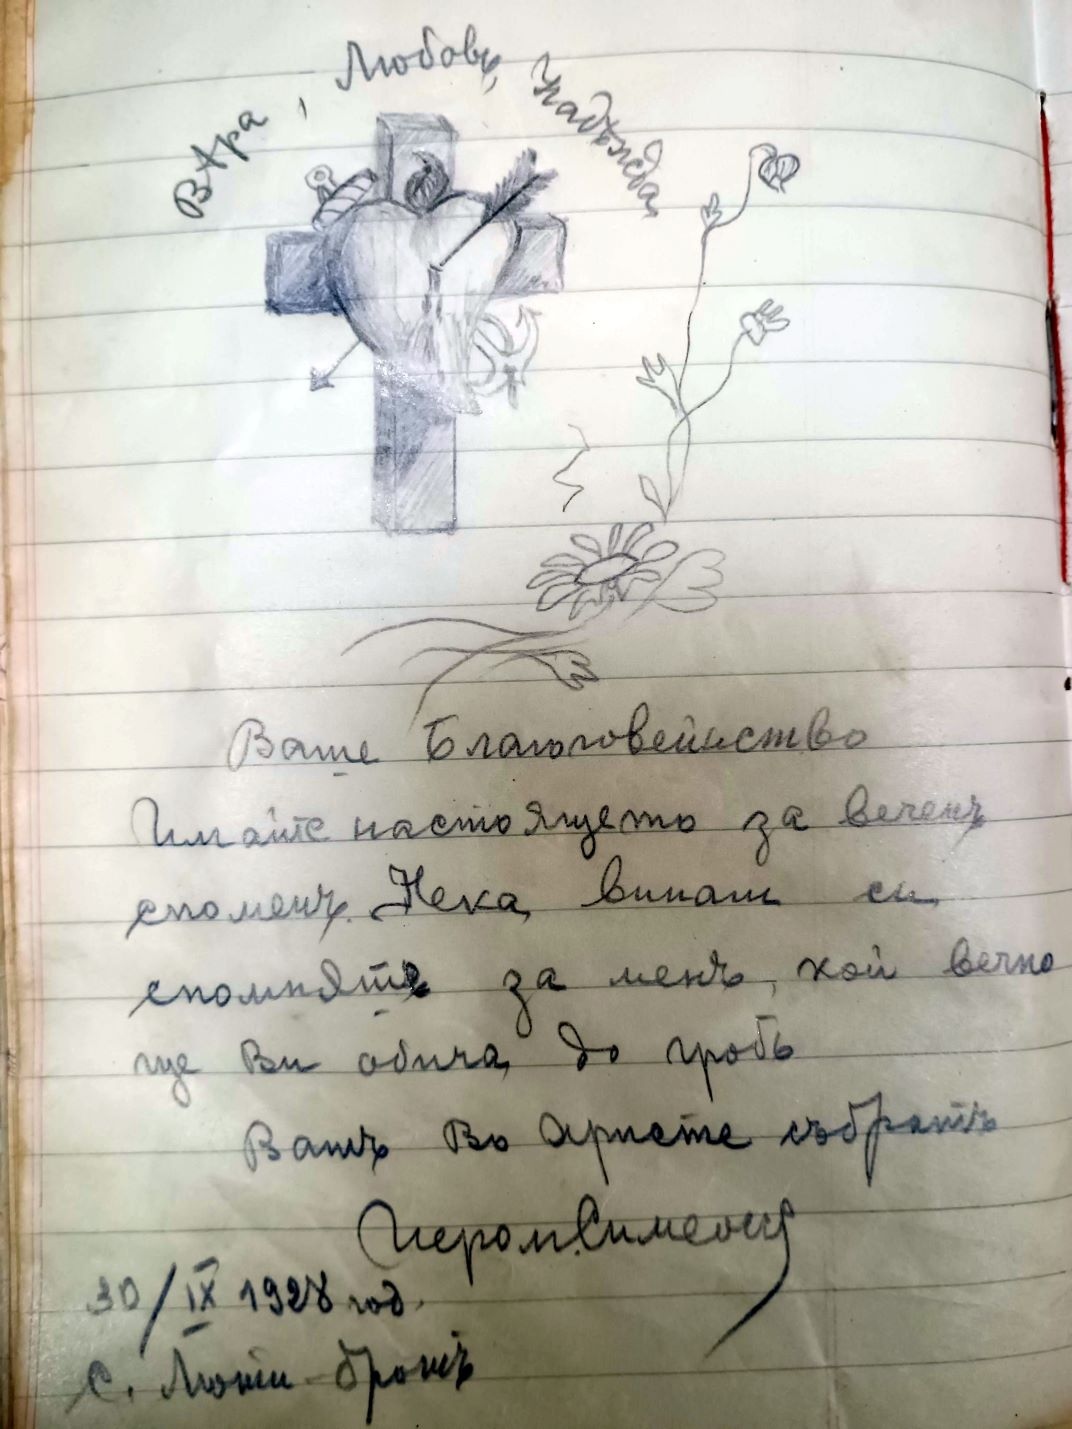 Вѣра, Любовь, Надѣжда,
Ваше Благоговейнство
Имайте настоящето за веченъ
споменъ. Нека винаги си
спомняте за менъ, кой вечно
ще Ви обича до гробъ
Вашъ Во Христе събратъ
Иером. Симеонъ
30/IX 1928 год.
с. Люти-бродъ